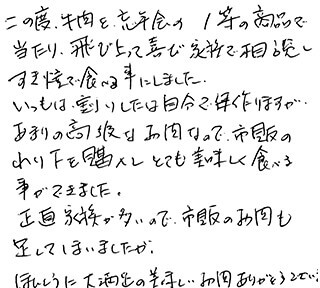 この度、牛肉を、忘年会の1等の商品で
当たり、飛び上って喜び家族で相談し
すき焼で食べる事にしました。
いつもは、割りしたは自分で作りますが
あまりの高級なお肉なので、市販の
わり下を購入しとても美味しく食べる
事ができました。
正直家族が多いので、市販のお肉も
足してしまいましたが、
ほんとうに大満足の美味しいお肉ありがとうござい